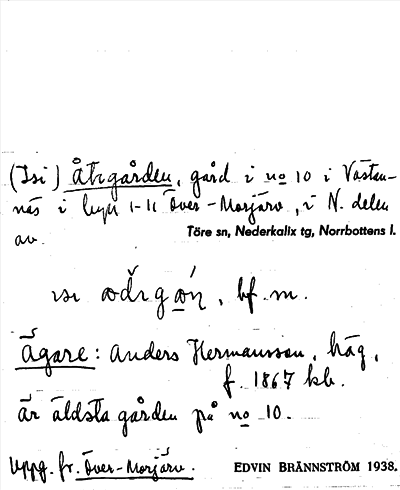 (Isi) Åtrgården, gård i no 10 i Västan-
näs i byn 1-11 Över-Morjärv, i N. delen
av.
Töre sn, Nederkalix tg, Norrbottens l.
bf. m.
Ägare: Anders Hermansson, häg,
f. 1867 kb.
är äldsta gården på no 10.
Uppg. fr. Över-Morjärv.
EDVIN BRÄNNSTRÖM 1938.